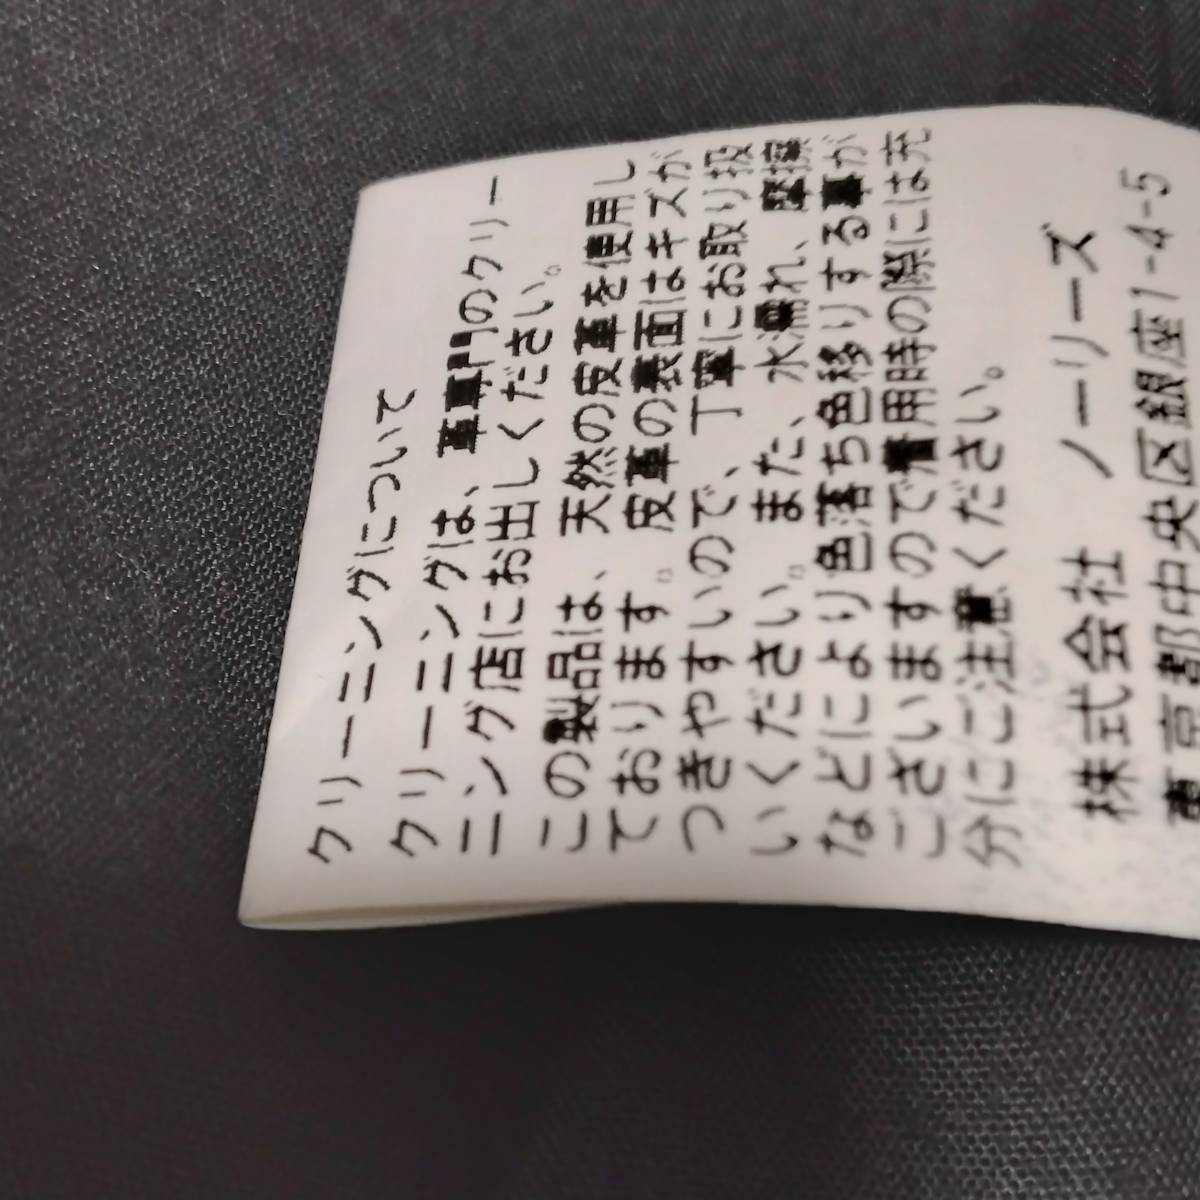 クリーニングについて
クリーニングは、革専門のクリー
ニング店にお出しください。
この製品は、天然の皮革を使用し
ております。皮革の表面はキズが
つきやすいので、丁寧にお取り扱
いください。また、水濡れ、摩擦
などにより色落ち色移りする事が
ございますので着用時の際には充
分にご注意ください。
株式会社 ノーリーズ
東京都中央区銀座1-4-5